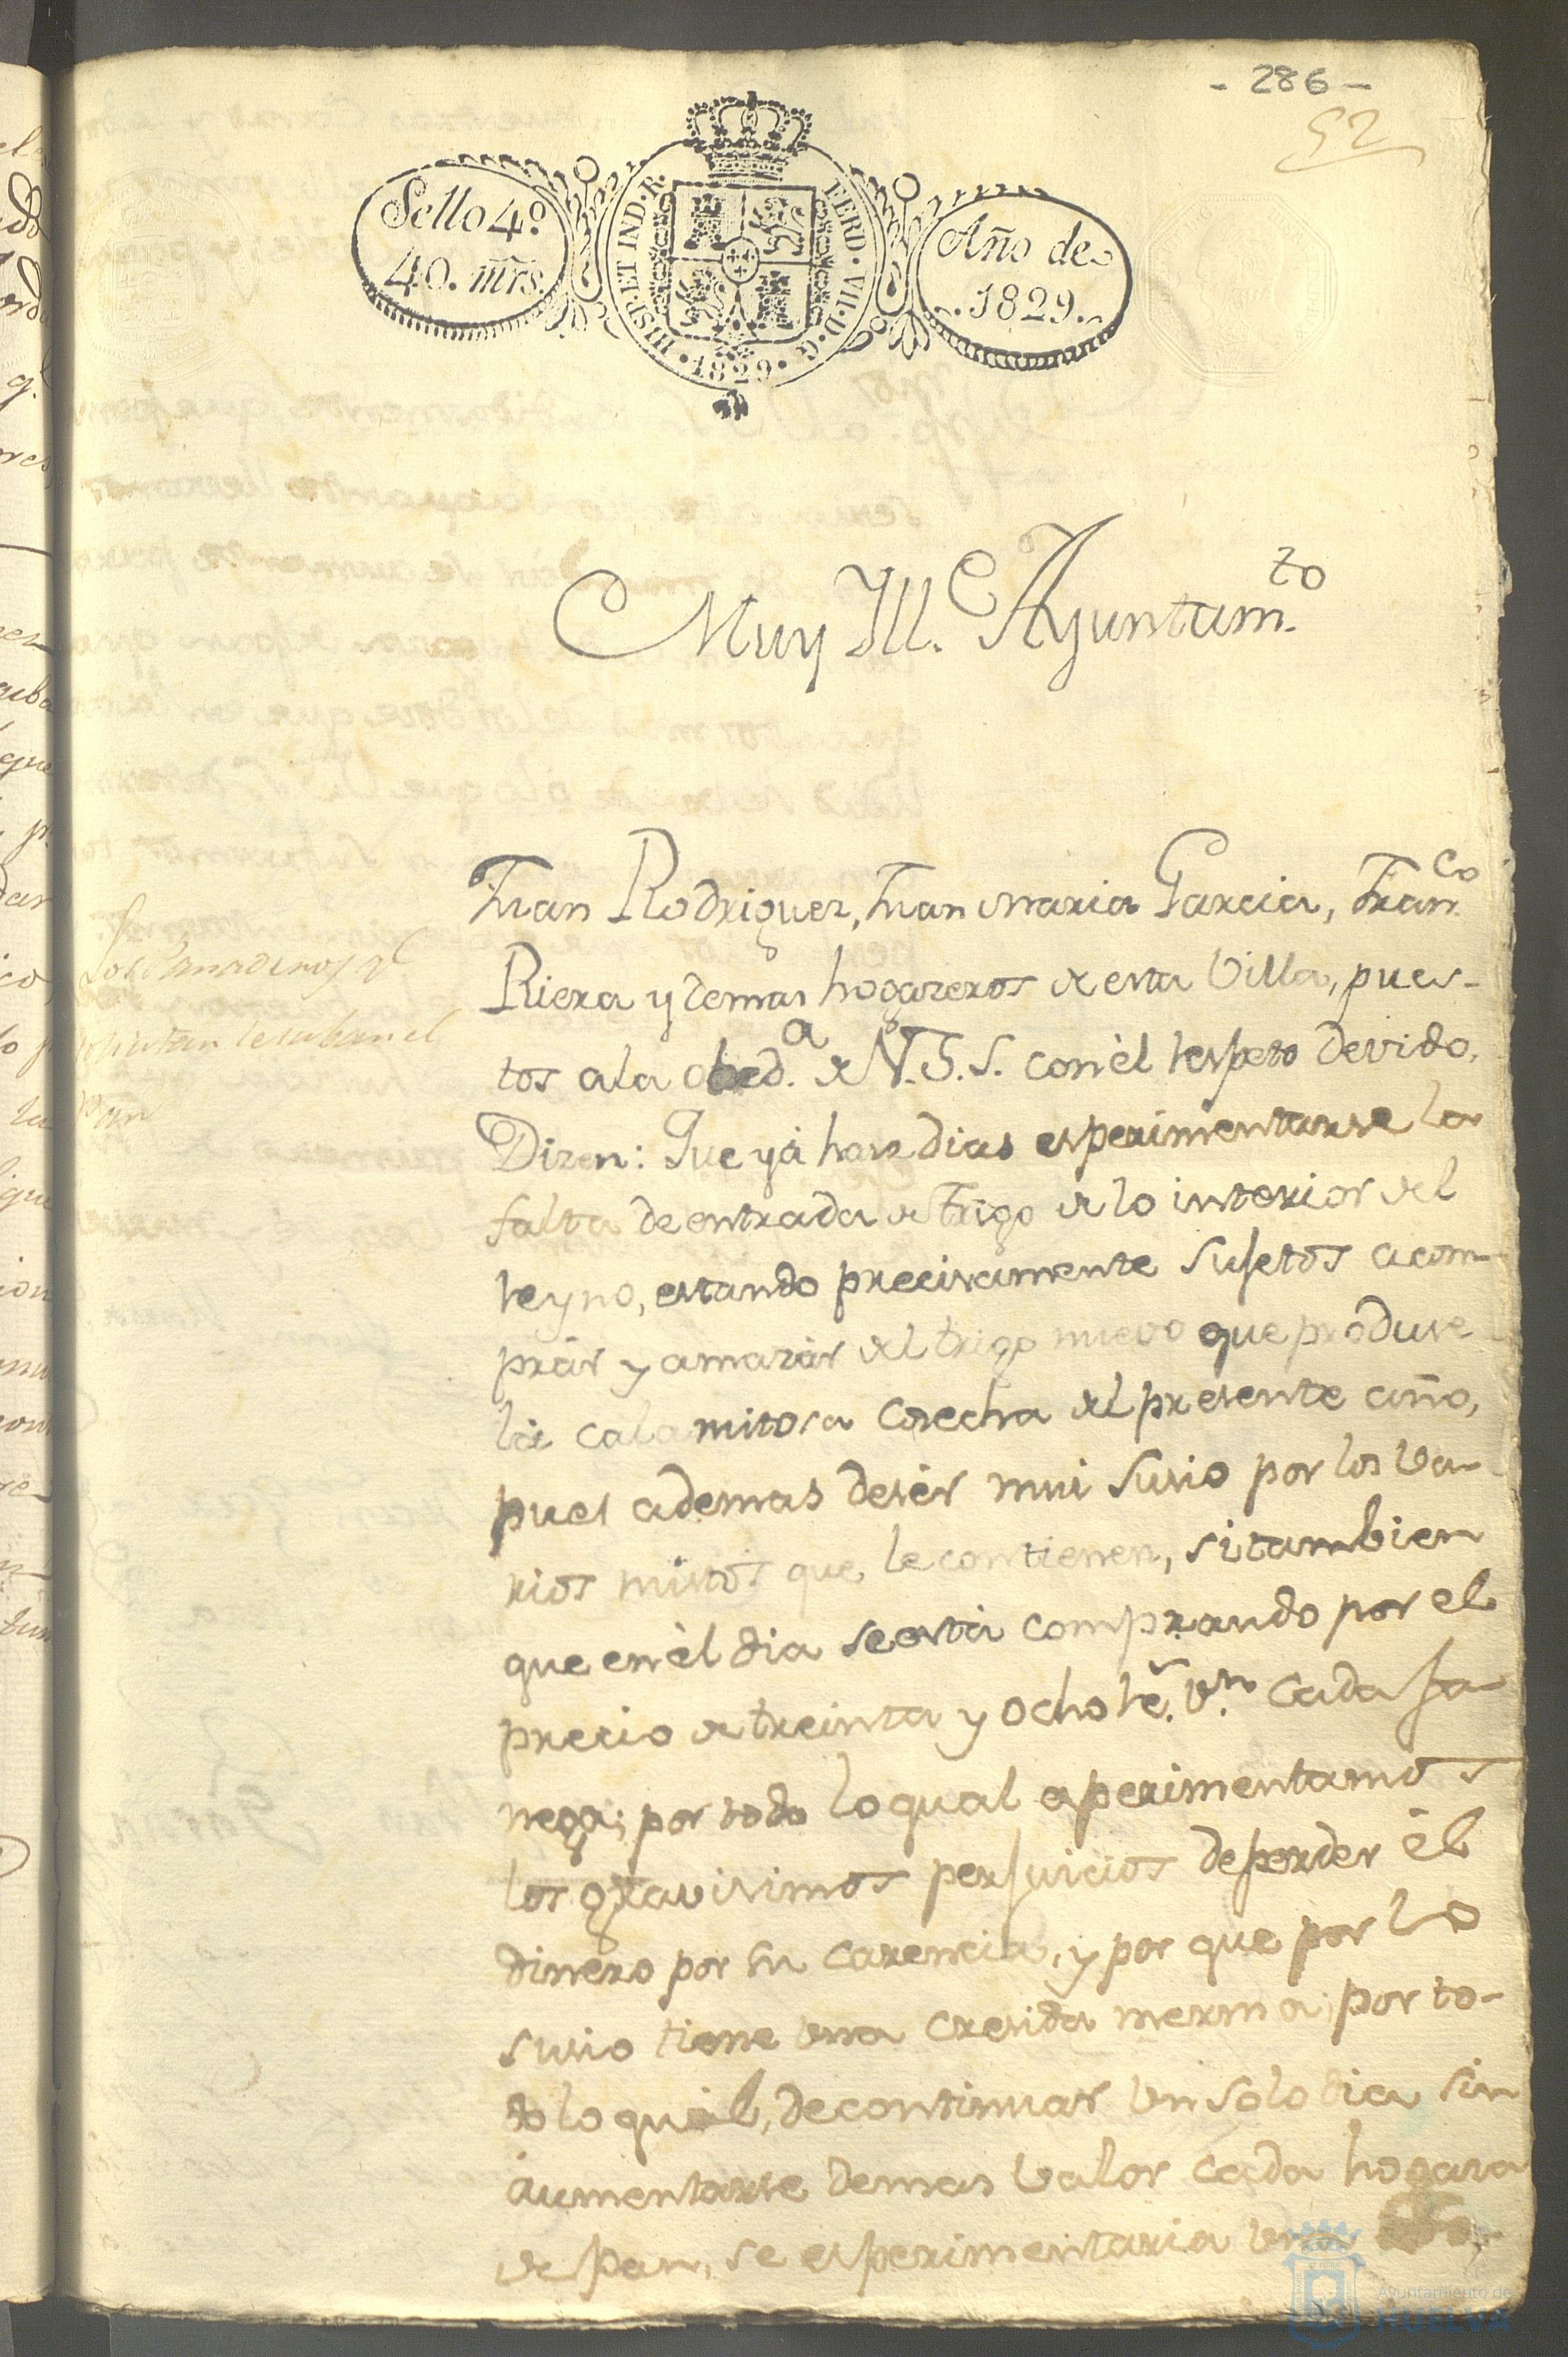 - 286 -
52
Sello 4º
40. mrs.
HISP. ET IND. R.
FERD. VII. D. G.
• 1829 •
Año de
1829.
Muy Ill.e Ayuntam.to
Juan Rodriguez, Juan Maria Garcia, Fran.co
Riera y demas hogazeros de esta Villa, pues-
tos a la obed.a de V.S.S. con èl respeto devido,
Dizen: Que yá haze dias esperimentarse la
falta de entrada de Trigo de lo interior del
reyno, estando precisamente sujetos a com-
prár y amazár del trigo nuevo que produse
la calamitosa cosecha del presente año,
pues ademas de sér mui susio por los va-
rios mistos que le contienen, si tambien
que en èl dia se está comprando por el
precio de treinta y ocho rr.s v.n cada fa-
nega; por todo lo qual esperimentamos
los gravisimos perjuicios de perder él
dinero por su carencia, y por que por lo
susio tiene una cresida merma; por to-
do lo quál, de continuar un solo dia sin
aumentarse demas valor cada hogasa
de pan, se esperimentaria una
Los Panaderos
solicitan se suban el
Pan
Ayuntamiento de
HUELVA